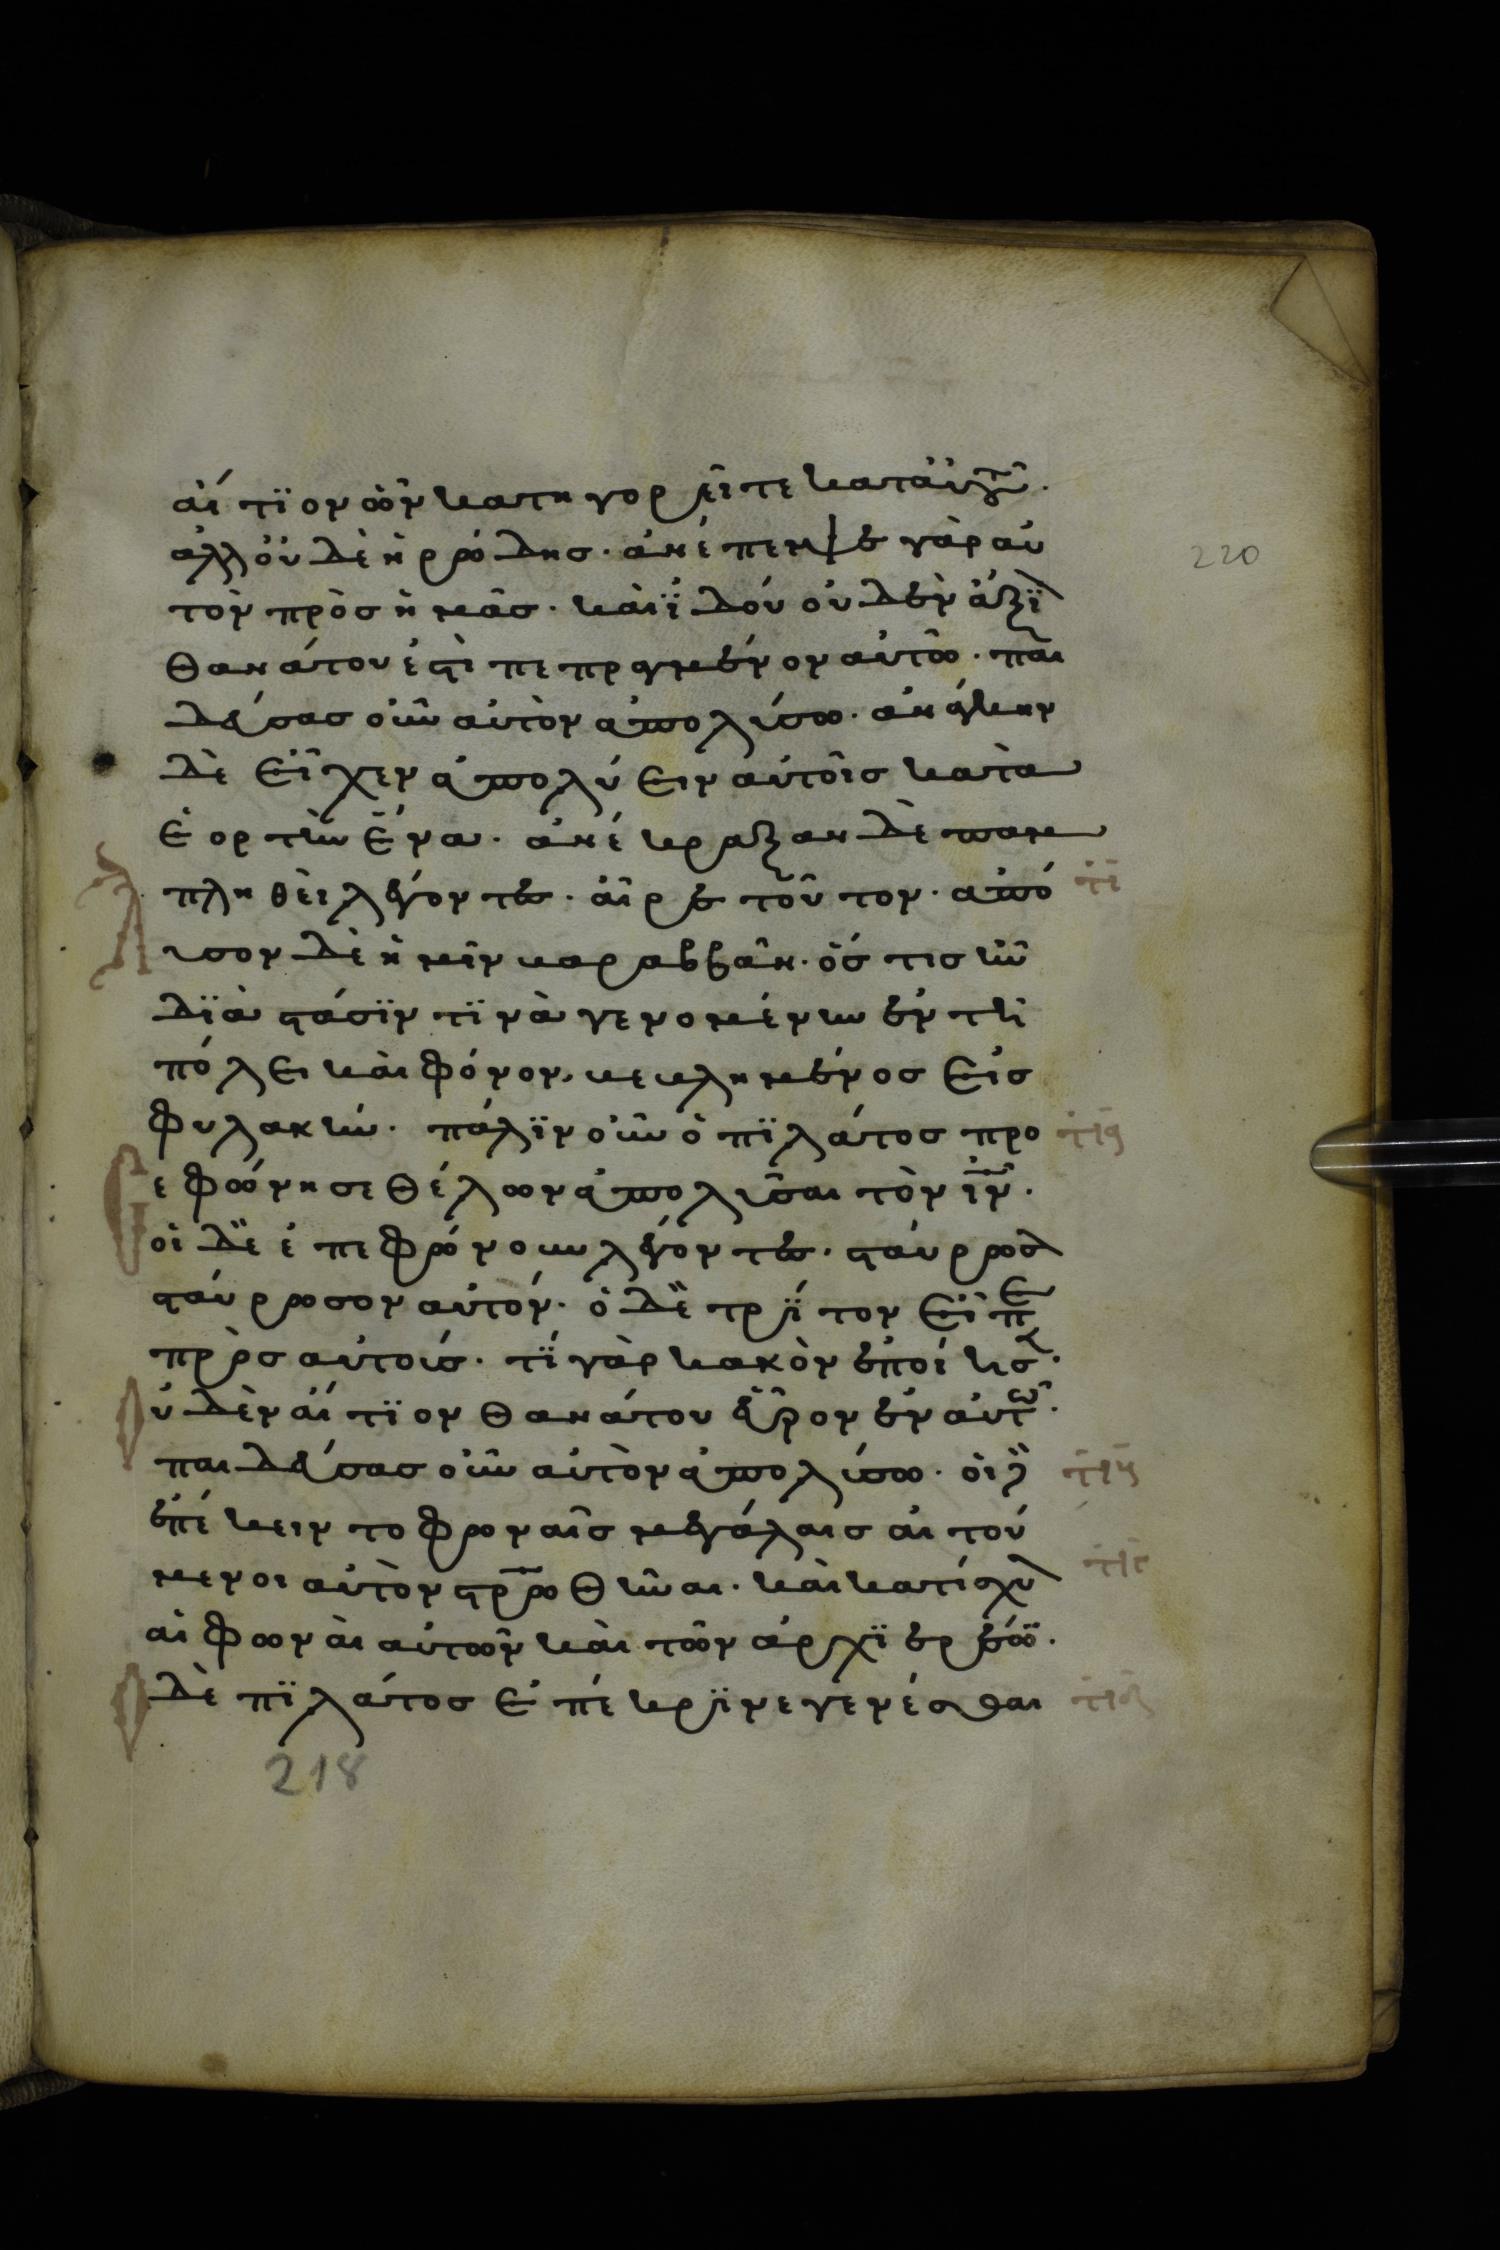 αἴτϊον ὧν κατηγορεῖτε κατ αὐτοῦ·
ἀλλ οὐδὲ ἡρώδησ· ἀνέπεμψε γὰρ αὐ
τὸν πρὸσ ἡμᾶσ· καὶ ϊδοὺ οὐδὲν ἄξϊ
θανάτου ἐστὶ πεπραγμένον αὐτῶ· παι
δεύσασ οὖν αὐτὸν ἀπολύσω· ἀνάγκην
δὲ εἶχεν ἀπολύειν αὐτοῖσ κατὰ
ἑορτὴν ἕνα· ἀνέκραξαν δὲ παμ
πληθεὶ λέγοντεσ· αἶρε τοῦτον· ἀπό τι
Λυσον δὲ ἡμῖν βαραββᾶν· ὅστισ ἦν
δϊὰ στάσϊν τϊνὰ γενομένην ἐν τῆ
πόλει καὶ φόνον, βεβλημένοσ εἰσ
φυλακήν· πάλϊν οὖν ὁ πϊλάτοσ προ
Εεφώνησε θέλων ἀπολῦσαι τὸν ιν·
οἱ δὲ ἐπεφώνουν λέγοντεσ· σταύρωσ
σταύρωσον αὐτόν· ὁ δὲ τρϊτον εἶπε
πρὸσ αὐτούσ· τϊ γὰρ κακὸν ἐποίησ·
Ουδὲν αἴτϊον θανάτου εὗρον ἐν αὐτῶ·
παιδεύσασ οὖν αὐτὸν ἀπολύσω· οἱ δὲ
ἐπέκειντο φωναῖσ μεγάλαισ αἰτού
μενοι αὐτὸν στρωθῆναι· καὶ κατίσχυ
αἱ φωναὶ αὐτῶν καὶ τῶν ἀρχϊερέων·
Ο δὲ πϊλάτοσ ἐπέκρϊνε γενέσθαι
220
218